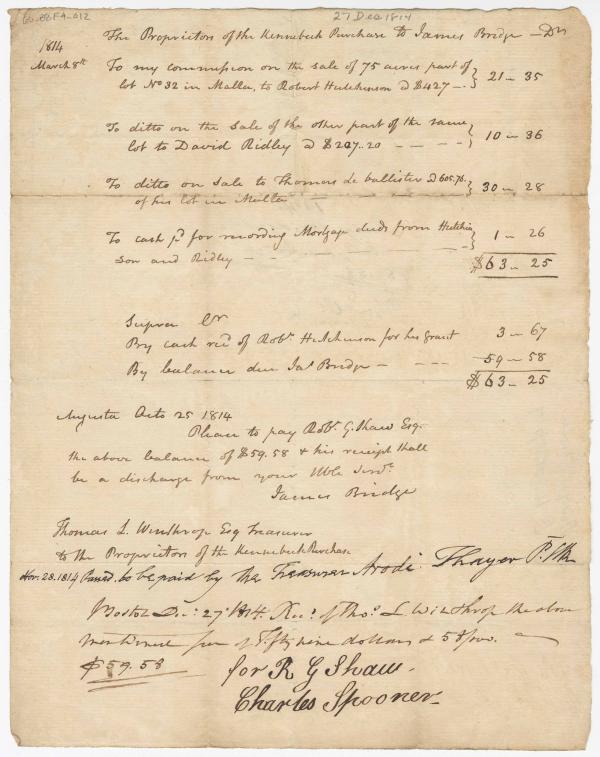 27 Dec 1814
1814 The Proprietors of the Kennebeck Purchase to James Bridge — Dr
March 8th To my commission on the sale of 75 acres part of
lot No 32 in Malta, to Robert Hutchinson @ $427 —. } 21 — 35
To ditto on the sale of the other part of the same
lot to David Ridley @ $207..20 — — — — } 10 — 36
To ditto on sale to Thomas de ballister @ 605.76. } 30 — 28
of his lot in Malta —
To cash pd for recording Mortgage deeds from Hutchin } 1 — 26
son and Ridley — — — — —
$63 — 25
Supra Cr
By cash recd of Robt Hutchinson for his grant 3 — 67
By balance due Jas Bridge — — — — 59 — 58
$63 — 25
Augusta Octo 25 1814
Please to pay Robt G. Shaw Esq.
the above balance of $59.58 & his receipt shall
be a discharge from your Hble Servt
James Bridge
Thomas L. Winthrop Esq Treasurer
to the Proprietors of the Kennebeck Purchase
Nov. 28. 1814 Passed, to be paid by the Treasurer Arodi Thayer P. Clk
Boston Dec: 27th 1814. Recd of Thos L. Winthrop the above
mentioned sum of Fifty nine dollars & 58/100. —
$59.58 for R G Shaw.
Charles Spooner